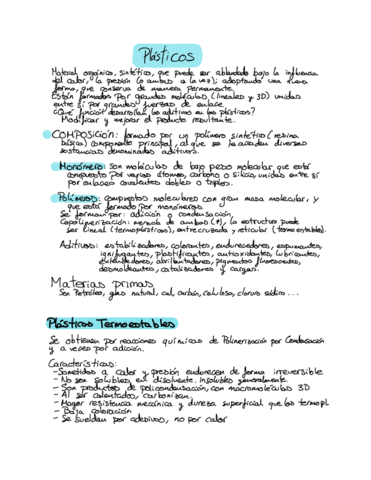 Plásticos
Material orgánico, sintético, que puede ser ablandado bajo la influencia
del calor, la presión (o ambas a la vez); adoptando una nueva
forma, que conserva de manera permanente.
Están formados por grandes moléculas (lineales y 3D) unidas
entre sí por grandes fuerzas de enlace.
¿Qué función desarrollan los aditivos en los plásticos?
Modificar y mejorar el producto resultante.
COMPOSICIÓN: formado por un polímero sintético (resina
básica) componente principal, al que se le añaden diversas
sustancias denominadas aditivos.
Monómero: Son moléculas de bajo peso molecular que está
compuesto por varios átomos, carbono o silicio, unidas entre sí
por enlaces covalentes dobles o triples.
Polímeros: compuestos moleculares con gran masa molecular, y
que está formado por monómeros.
Se forman por: adición o condensación,
Copolimerización: mezcla de ambas (↑), la estructura puede
ser lineal (termoplásticos), entrecruzada y reticular (termoestable).
Aditivos: estabilizadores, colorantes, endurecedores, espumantes,
ignifugantes, plastificantes, antioxidantes, lubricantes,
extendedores, abrillantadores, pigmentos fluorescentes,
desmoldeantes, catalizadores y cargas.
Materias primas
Son Petróleo, gas natural, cal, carbón, celulosa, cloruro sódico ...
Plásticos Termoestables
Se obtienen por reacciones químicas de Polimerización por Condensación
y a veces por adición.
Características:
- Sometidos a calor y presión endurecen de forma irreversible
- No son solubles en disolvente. Insolubles generalmente.
- Son productos de policondensación, con macromoléculas 3D
- Al ser calentados, carbonizan.
- Mayor resistencia mecánica y dureza superficial que los termopl.
- Baja coloración
- Se sueldan por adesivos, no por calor